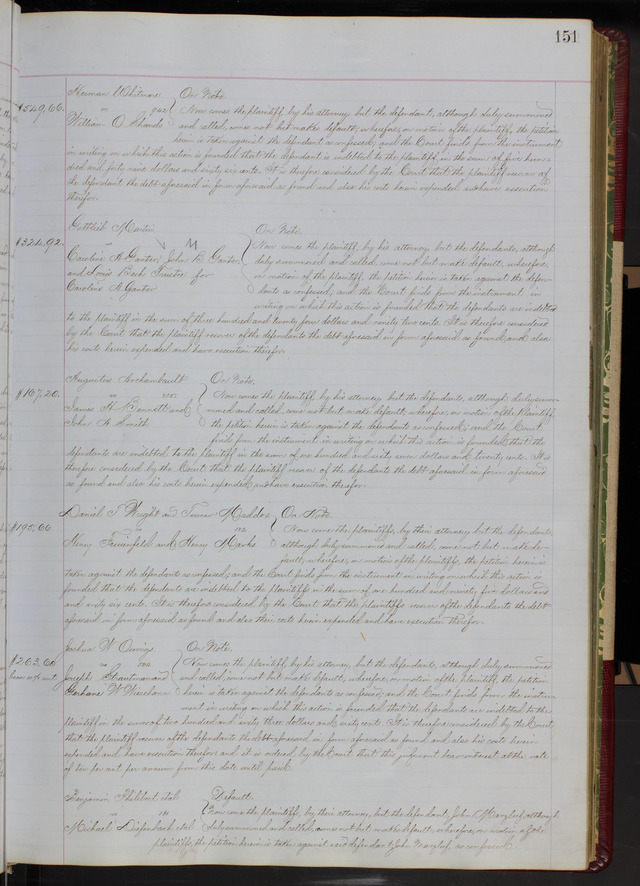 151
Herman Whitmore On Note.
$549.66. vs 942 Now comes the plaintiff, by his attorney, but the defendant, although duly summoned
William O. Shands and called, comes not but makes default; wherefore, on motion of the plaintiff, the petition
herein is taken against the defendant as confessed; and the Court finds from the instrument
in writing on which this action is founded that the defendant is indebted to the plaintiff in the sum of five hun-
dred and forty nine dollars and sixty six cents. It is therefore considered by the Court that the plaintiff recover of
the defendant the debt aforesaid in form aforesaid as found and also his costs herein expended and have execution
therefor.
Gottlieb Martin On Note.
$324.92. vs Now comes the plaintiff, by his attorney, but the defendants, although
Caroline A. Ganter, John B. Ganter duly summoned and called, come not but make default, wherefore,
and Louis Bach Trustee for on motion of the plaintiff, the petition herein is taken against the defen-
Caroline A. Ganter dants as confessed; and the Court finds from the instrument in
writing on which this action is founded that the defendants are indebted
to the plaintiff in the sum of three hundred and twenty four dollars and ninety two cents. It is therefore considered
by the Court that the plaintiff recover of the defendants the debt aforesaid in form aforesaid as found and also
his costs herein expended and have execution therefor.
Augustus Archambault On Note.
$167.20. vs Now comes the plaintiff, by his attorney, but the defendants, although duly sum-
James H. Bennett and moned and called, come not but make default, wherefore, on motion of the Plaintiff,
John A. Smith the petition herein is taken against the defendants as confessed; and the Court
finds from the instrument in writing on which this action is founded that the
defendants are indebted to the plaintiff in the sum of one hundred and sixty seven dollars and twenty cents. It is
therefore considered by the Court that the plaintiff recover of the defendants the debt aforesaid in form aforesaid
as found and also his costs herein expended and have execution therefor.
Daniel T. Wright and Maddox On Note.
$195.66 vs Now come the plaintiffs, by their attorney but the defendants,
Henry and Henry Marks although duly summoned and called, come not but make de-
fault; wherefore, on motion of the plaintiffs, the petition herein is
taken against the defendants as confessed; and the Court finds from the instrument in writing on which this action is
founded that the defendants are indebted to the plaintiffs in the sum of one hundred and ninety five dollars and
and sixty six cents. It is therefore considered by the Court that the plaintiffs recover of the defendants the debt
aforesaid in form aforesaid as found and also their costs herein expended and have execution therefor.
Joshua W. Owings On Note.
$263.60 vs Now comes the plaintiff, by his attorney, but the defendants, although duly summoned
Joseph and and called, come not but make default, wherefore, on motion of the plaintiff, the petition
W. herein is taken against the defendants as confessed; and the Court finds from the instru-
ment in writing on which this action is founded that the defendants are indebted to the
plaintiff in the sum of two hundred and sixty three dollars and sixty cents. It is therefore considered by the Court
that the plaintiff recover of the defendants the debt aforesaid in form aforesaid as found and also his costs herein
expended and have execution therefor and it is ordered by the Court that this judgment bear interest at the rate
of ten per cent per annum from this date until paid.
Benjamin et al Default.
vs Now come the plaintiffs, by their attorney, but the defendant, John although
Michael Diefenbach et al duly summoned and called, comes not but makes default, wherefore, on motion of the
plaintiffs, the petition herein is taken against said defendant John as confessed.